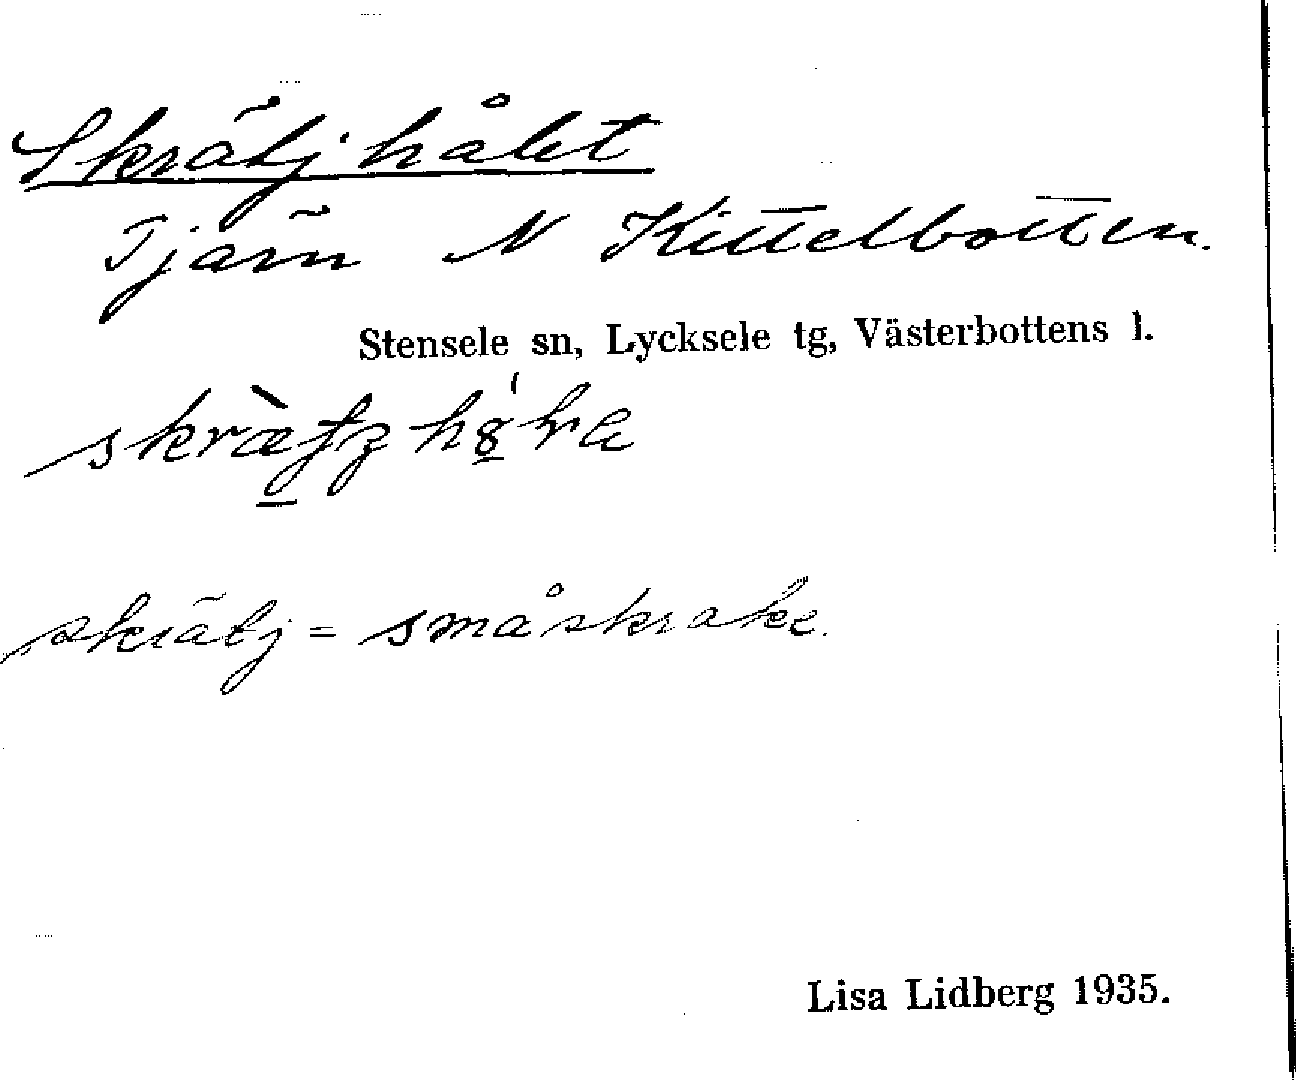 Skrätjhålet
Tjärn N Kittelbotten.
Stensele sn, Lycksele tg, Västerbottens l.
skrätj = småskrake.
Lisa Lidberg 1935.